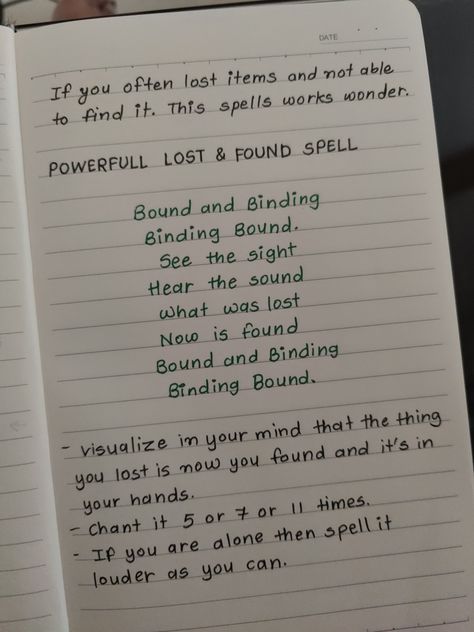 DATE
If you often lost items and not able
to find it. This spells works wonder.
POWERFULL LOST & FOUND SPELL
Bound and Binding
Binding Bound.
See the sight
Hear the sound
What was lost
Now is found
Bound and Binding
Binding Bound.
- visualize in your mind that the thing
you lost is now you found and it's in
your hands.
- Chant it 5 or 7 or 11 times.
- If you are alone then spell it
louder as you can.